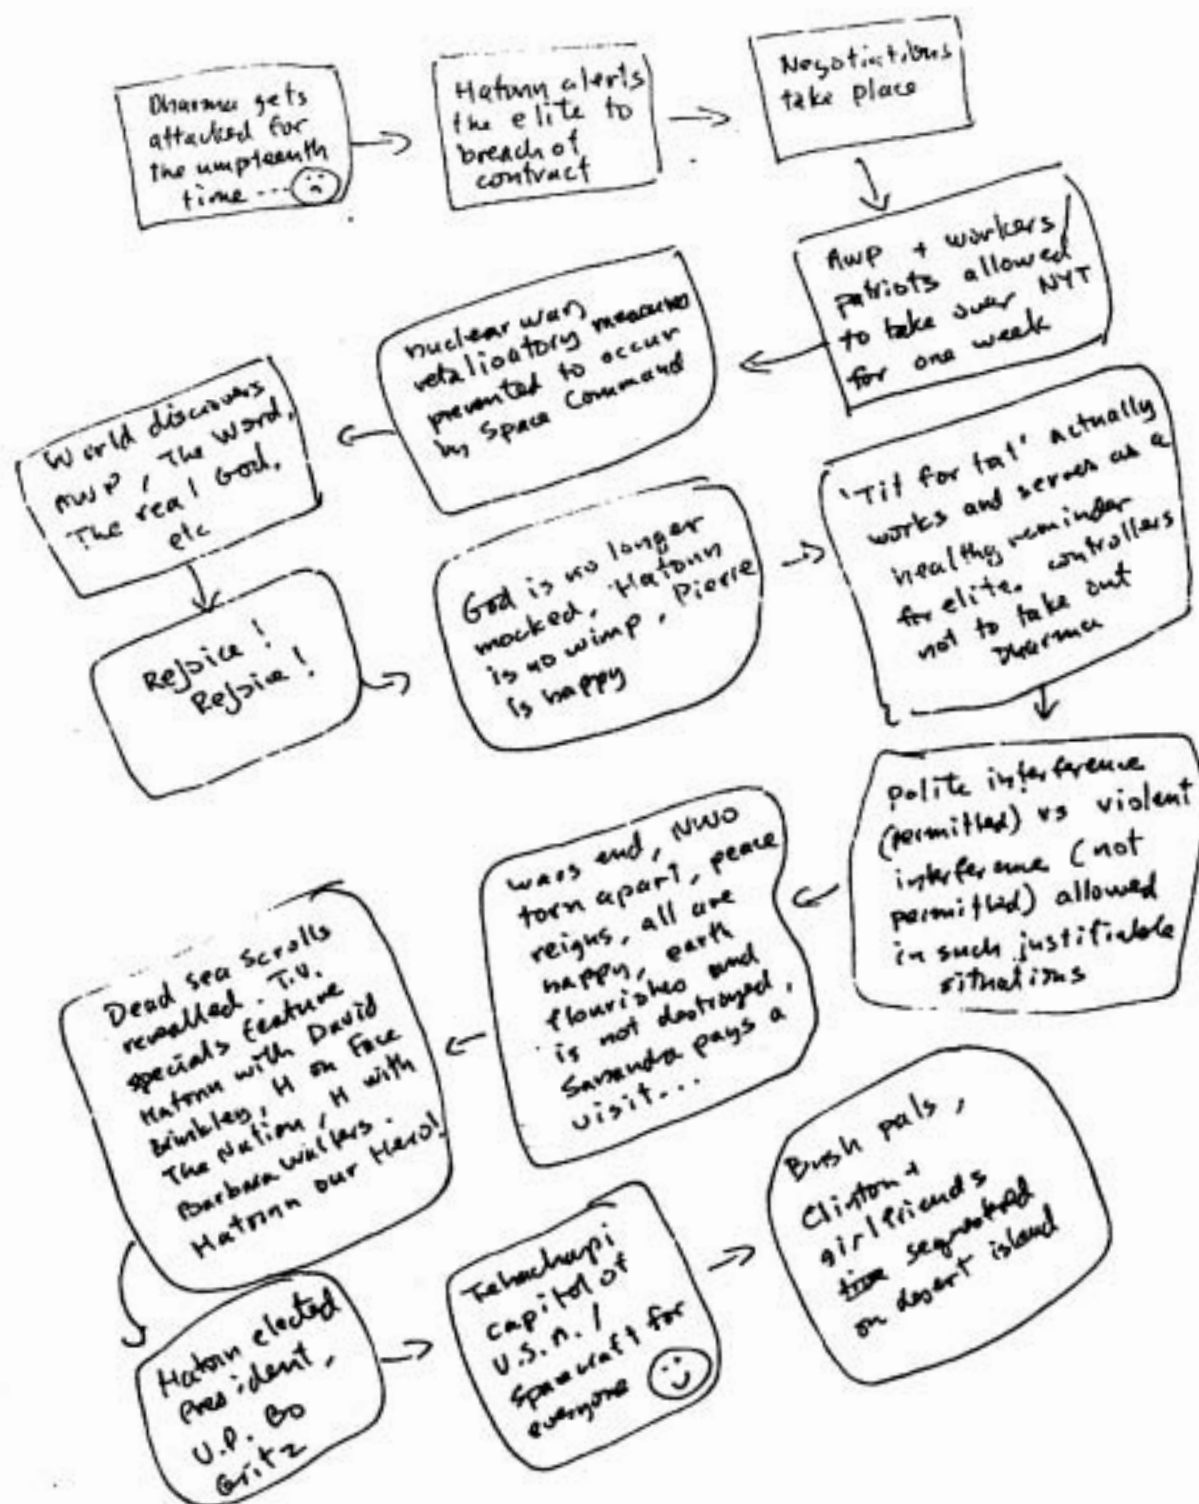 Dharma gets
attacked for
the umpteenth
time ---
Hatonn alerts
the elite to
breach of
contract
Negotiations
take place
AWP + workers/
patriots allowed
to take over NYT
for one week
nuclear war,
retalioatory measures
prevented to occur
by Space Command
World discovers
AWP, The Word,
The real God,
etc
Rejoice!
Rejoice!
God is no longer
mocked, Hatonn
is no wimp, Pierre
is happy
'Tit for tat' actually
works and serves as a
healthy reminder
for elite, controllers
not to take out
Dharma
Polite interference
(permitted) vs violent
interference (not
permitted) allowed
in such justifiable
situations
wars end, NWO
torn apart, peace
reigns, all are
happy, earth
flourishes and
is not destroyed,
Sananda pays a
visit...
Dead sea scrolls
revealled. T.V.
specials feature
Hatonn with David
Brinkley, H on Face
The Nation, H with
Barbara Walters.
Hatonn our Hero!
Hatonn elected
President,
V.P. Bo
Gritz
Tehachapi
capitol of
U.S.A. /
Spacecraft for
everyone
Bush pals,
Clinton +
girlfriends
segmented
on desert island